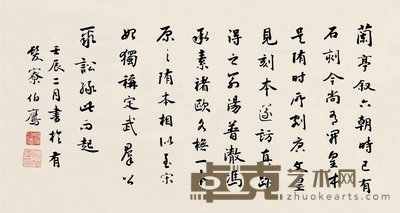 蘭亭叙六朝時已有
石刻今尚有開皇本
是隋時所刻唐文皇
見刻本遂訪真跡
得之湯普澈馮
承素褚歐各橅一本
原之隋本相以至宋
初獨稱定武羣公
聚訟緣此而起
壬辰二月書於有
髮寮伯鷹